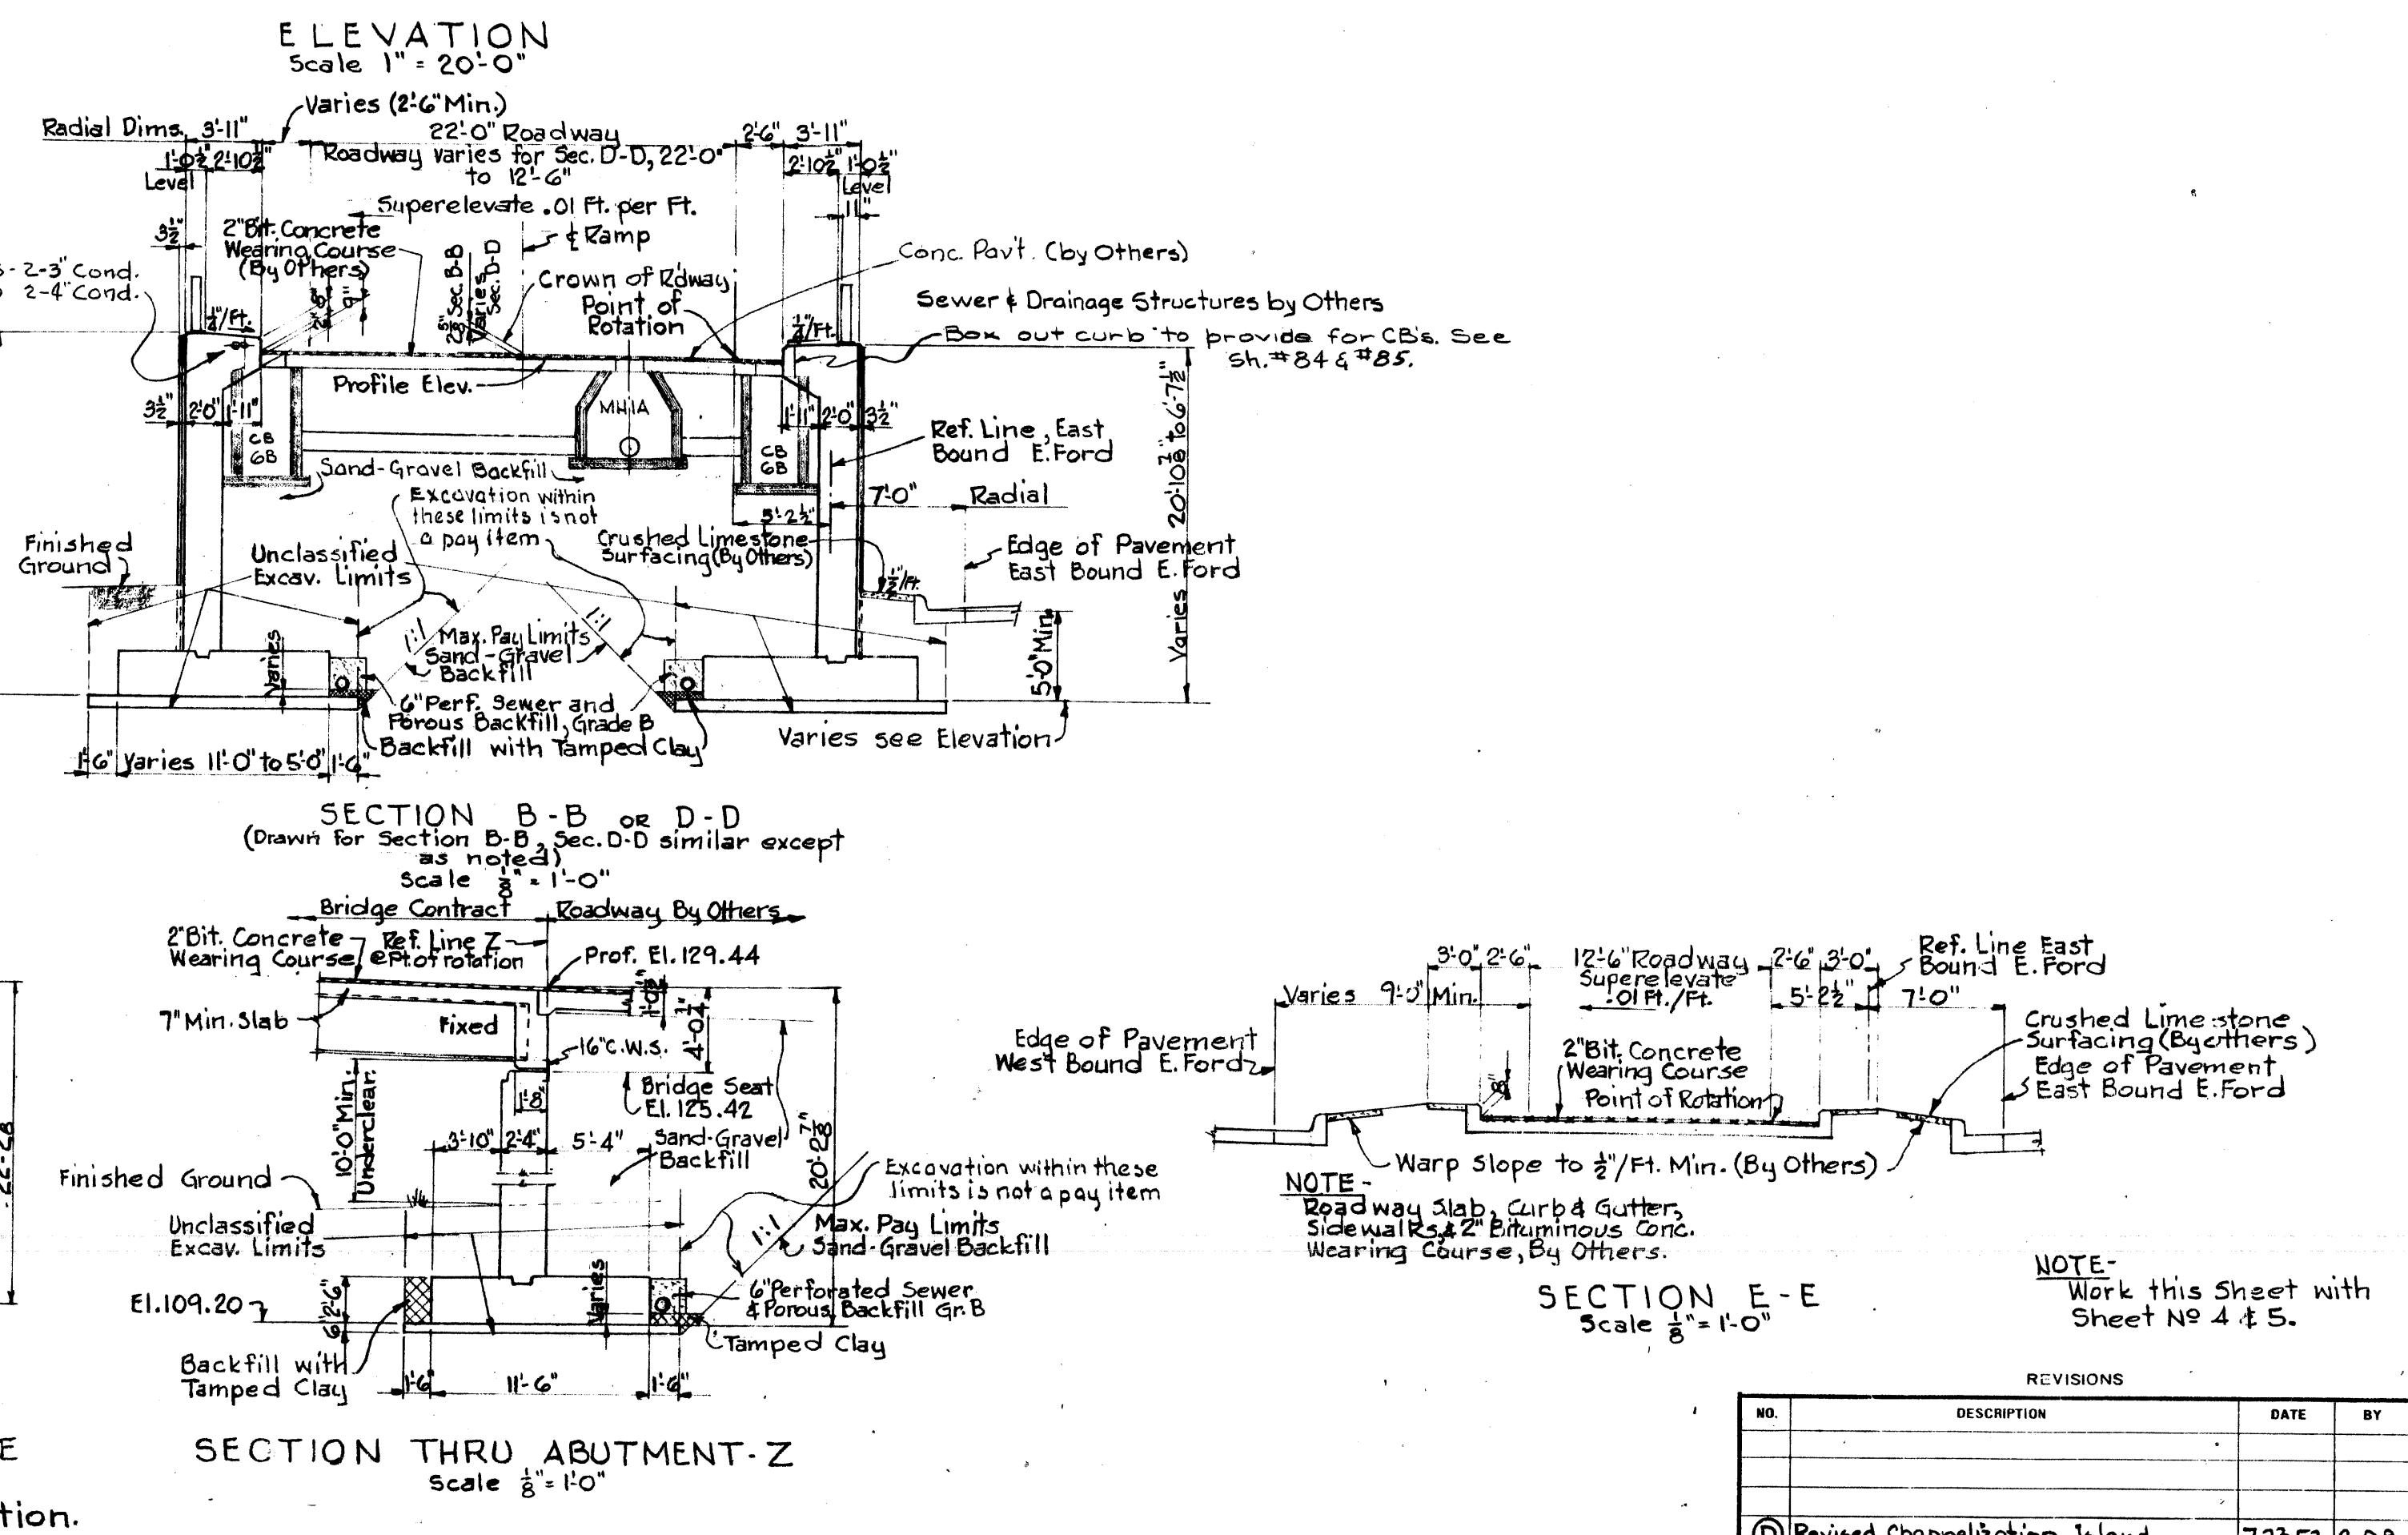 ELEVATION
Scale 1" = 20'-0"
Varies (2'-6" Min.)
Radial Dims. 3'-11"
22'-0" Roadway
2'-6" 3'-11"
1'-0½" 2'-10½"
Roadway varies for Sec. D-D, 22'-0"
to 12'-6"
2'-10½" 1'-0½"
Level
Level
Superelevate .01 Ft. per Ft.
11"
3½"
2" Bit. Concrete
Wearing Course
(By Others)
℄ Ramp
2⅝" Sec. B-B
Varies Sec. D-D
Conc. Pav't. (by Others)
2-3" Cond.
2-4" Cond.
8"
9"
Crown of R'dway
Point of
Rotation
Sewer & Drainage Structures by Others
¼"/Ft.
¼"/Ft.
Box out curb to provide for CB's. See
Sh. #84 & #85.
Profile Elev.
MH1A
3½" 2'-0" 1'-11"
1'-11" 2'-0" 3½"
CB
6B
CB
6B
Ref. Line, East
Bound E. Ford
Varies 20'-10⅞" to 6'-7½"
Sand-Gravel Backfill
Excavation within
these limits is not
a pay item
7'-0" Radial
5'-2½"
Finished
Ground
Unclassified
Excav. Limits
Crushed Limestone
Surfacing (By Others)
½"/Ft.
Edge of Pavement
East Bound E. Ford
1:1
1:1
Max. Pay Limits
Sand-Gravel
Backfill
Varies
5'-0" Min.
6" Perf. Sewer and
Porous Backfill, Grade B
Backfill with Tamped Clay
Varies see Elevation
1'-6" Varies 11'-0" to 5'-0" 1'-6"
SECTION B-B OR D-D
(Drawn for Section B-B, Sec. D-D similar except
as noted)
Scale ⅛" = 1'-0"
Bridge Contract
Roadway By Others
2" Bit. Concrete
Wearing Course
Ref. Line Z
@ Pt. of rotation
Prof. El. 129.44
1'-0½"
4'-0¼"
7" Min. Slab
Fixed
16" C.W.S.
1'-8"
Bridge Seat
El. 125.42
10'-0" Min.
Underclear.
3'-10" 2'-4" 5'-4"
Sand-Gravel
Backfill
20'-2⅞"
Finished Ground
Excavation within these
limits is not a pay item
Unclassified
Excav. Limits
1:1
Max. Pay Limits
Sand-Gravel Backfill
2'-6"
6"
El. 109.20
Varies
6" Perforated Sewer
& Porous Backfill Gr. B
Tamped Clay
Backfill with
Tamped Clay
1'-6" 11'-6" 1'-6"
SECTION THRU ABUTMENT-Z
Scale ⅛" = 1'-0"
E
tion.
3'-0" 2'-6"
12'-6" Roadway
Superelevate
.01 Ft./Ft.
2'-6" 3'-0"
Ref. Line East
Bound E. Ford
Varies 9'-0" Min.
5'-2½"
7'-0"
Edge of Pavement
West Bound E. Ford
Crushed Limestone
Surfacing (By others)
Edge of Pavement
East Bound E. Ford
2" Bit. Concrete
Wearing Course
Point of Rotation
8"
Warp Slope to ½"/Ft. Min. (By Others)
NOTE-
Roadway Slab, Curb & Gutter,
Sidewalks, & 2" Bituminous Conc.
Wearing Course, By Others.
SECTION E-E
Scale ⅛" = 1'-0"
NOTE-
Work this Sheet with
Sheet Nº 4 & 5.
REVISIONS
NO. DESCRIPTION DATE BY
D Revised Channelization Island